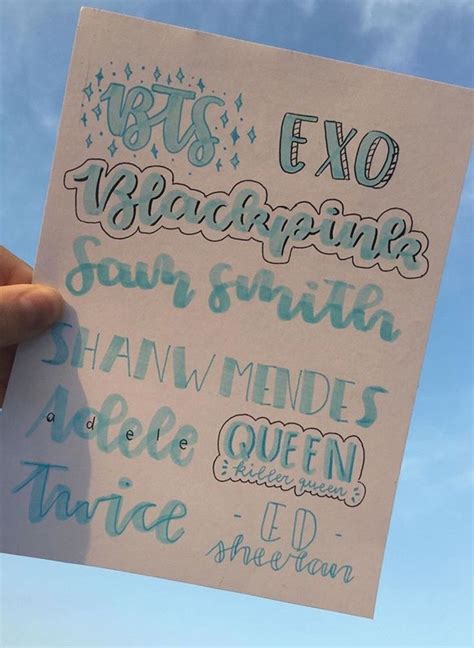 BTS
EXO
Blackpink
Sam Smith
SHANW MENDES
Adele
adele
QUEEN
killer queen
Twice
- ED -
sheeran